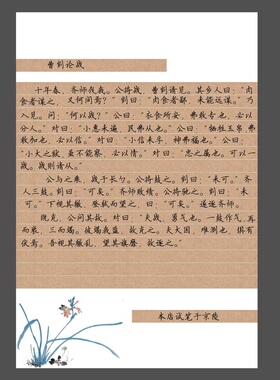 曹刿论战
十年春，齐师伐我。公将战，曹刿请见。其乡人曰：“肉
食者谋之，又何间焉？”刿曰：“肉食者鄙，未能远谋。”乃
入见。问：“何以战？”公曰：“衣食所安，弗敢专也，必以
分人。”对曰：“小惠未遍，民弗从也。”公曰：“牺牲玉帛，弗
敢加也，必以信。”对曰：“小信未孚，神弗福也。”公曰：
“小大之狱，虽不能察，必以情。”对曰：“忠之属也。可以一
战。战则请从。”
公与之乘，战于长勺。公将鼓之。刿曰：“未可。”齐
人三鼓。刿曰：“可矣。”齐师败绩。公将驰之。刿曰：“未
可。”下视其辙，登轼而望之，曰：“可矣。”遂逐齐师。
既克，公问其故。对曰：“夫战，勇气也。一鼓作气，再
而衰，三而竭。彼竭我盈，故克之。夫大国，难测也，惧有
伏焉。吾视其辙乱，望其旗靡，故逐之。”
本店试笔于京陵